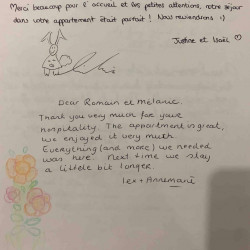 Merci beaucoup pour l'accueil et les petites attentions, notre séjour
dans votre appartement était parfait ! Nous reviendrons :)
Justine et Isaël ♡
Dear Romain et Mélanie.
Thank you very much for your
hospitality. The appartment is great,
we enjoyed it very much.
Everything (and more) we needed
was here. Next time we stay
a little bit longer.
Leo + Annemarie